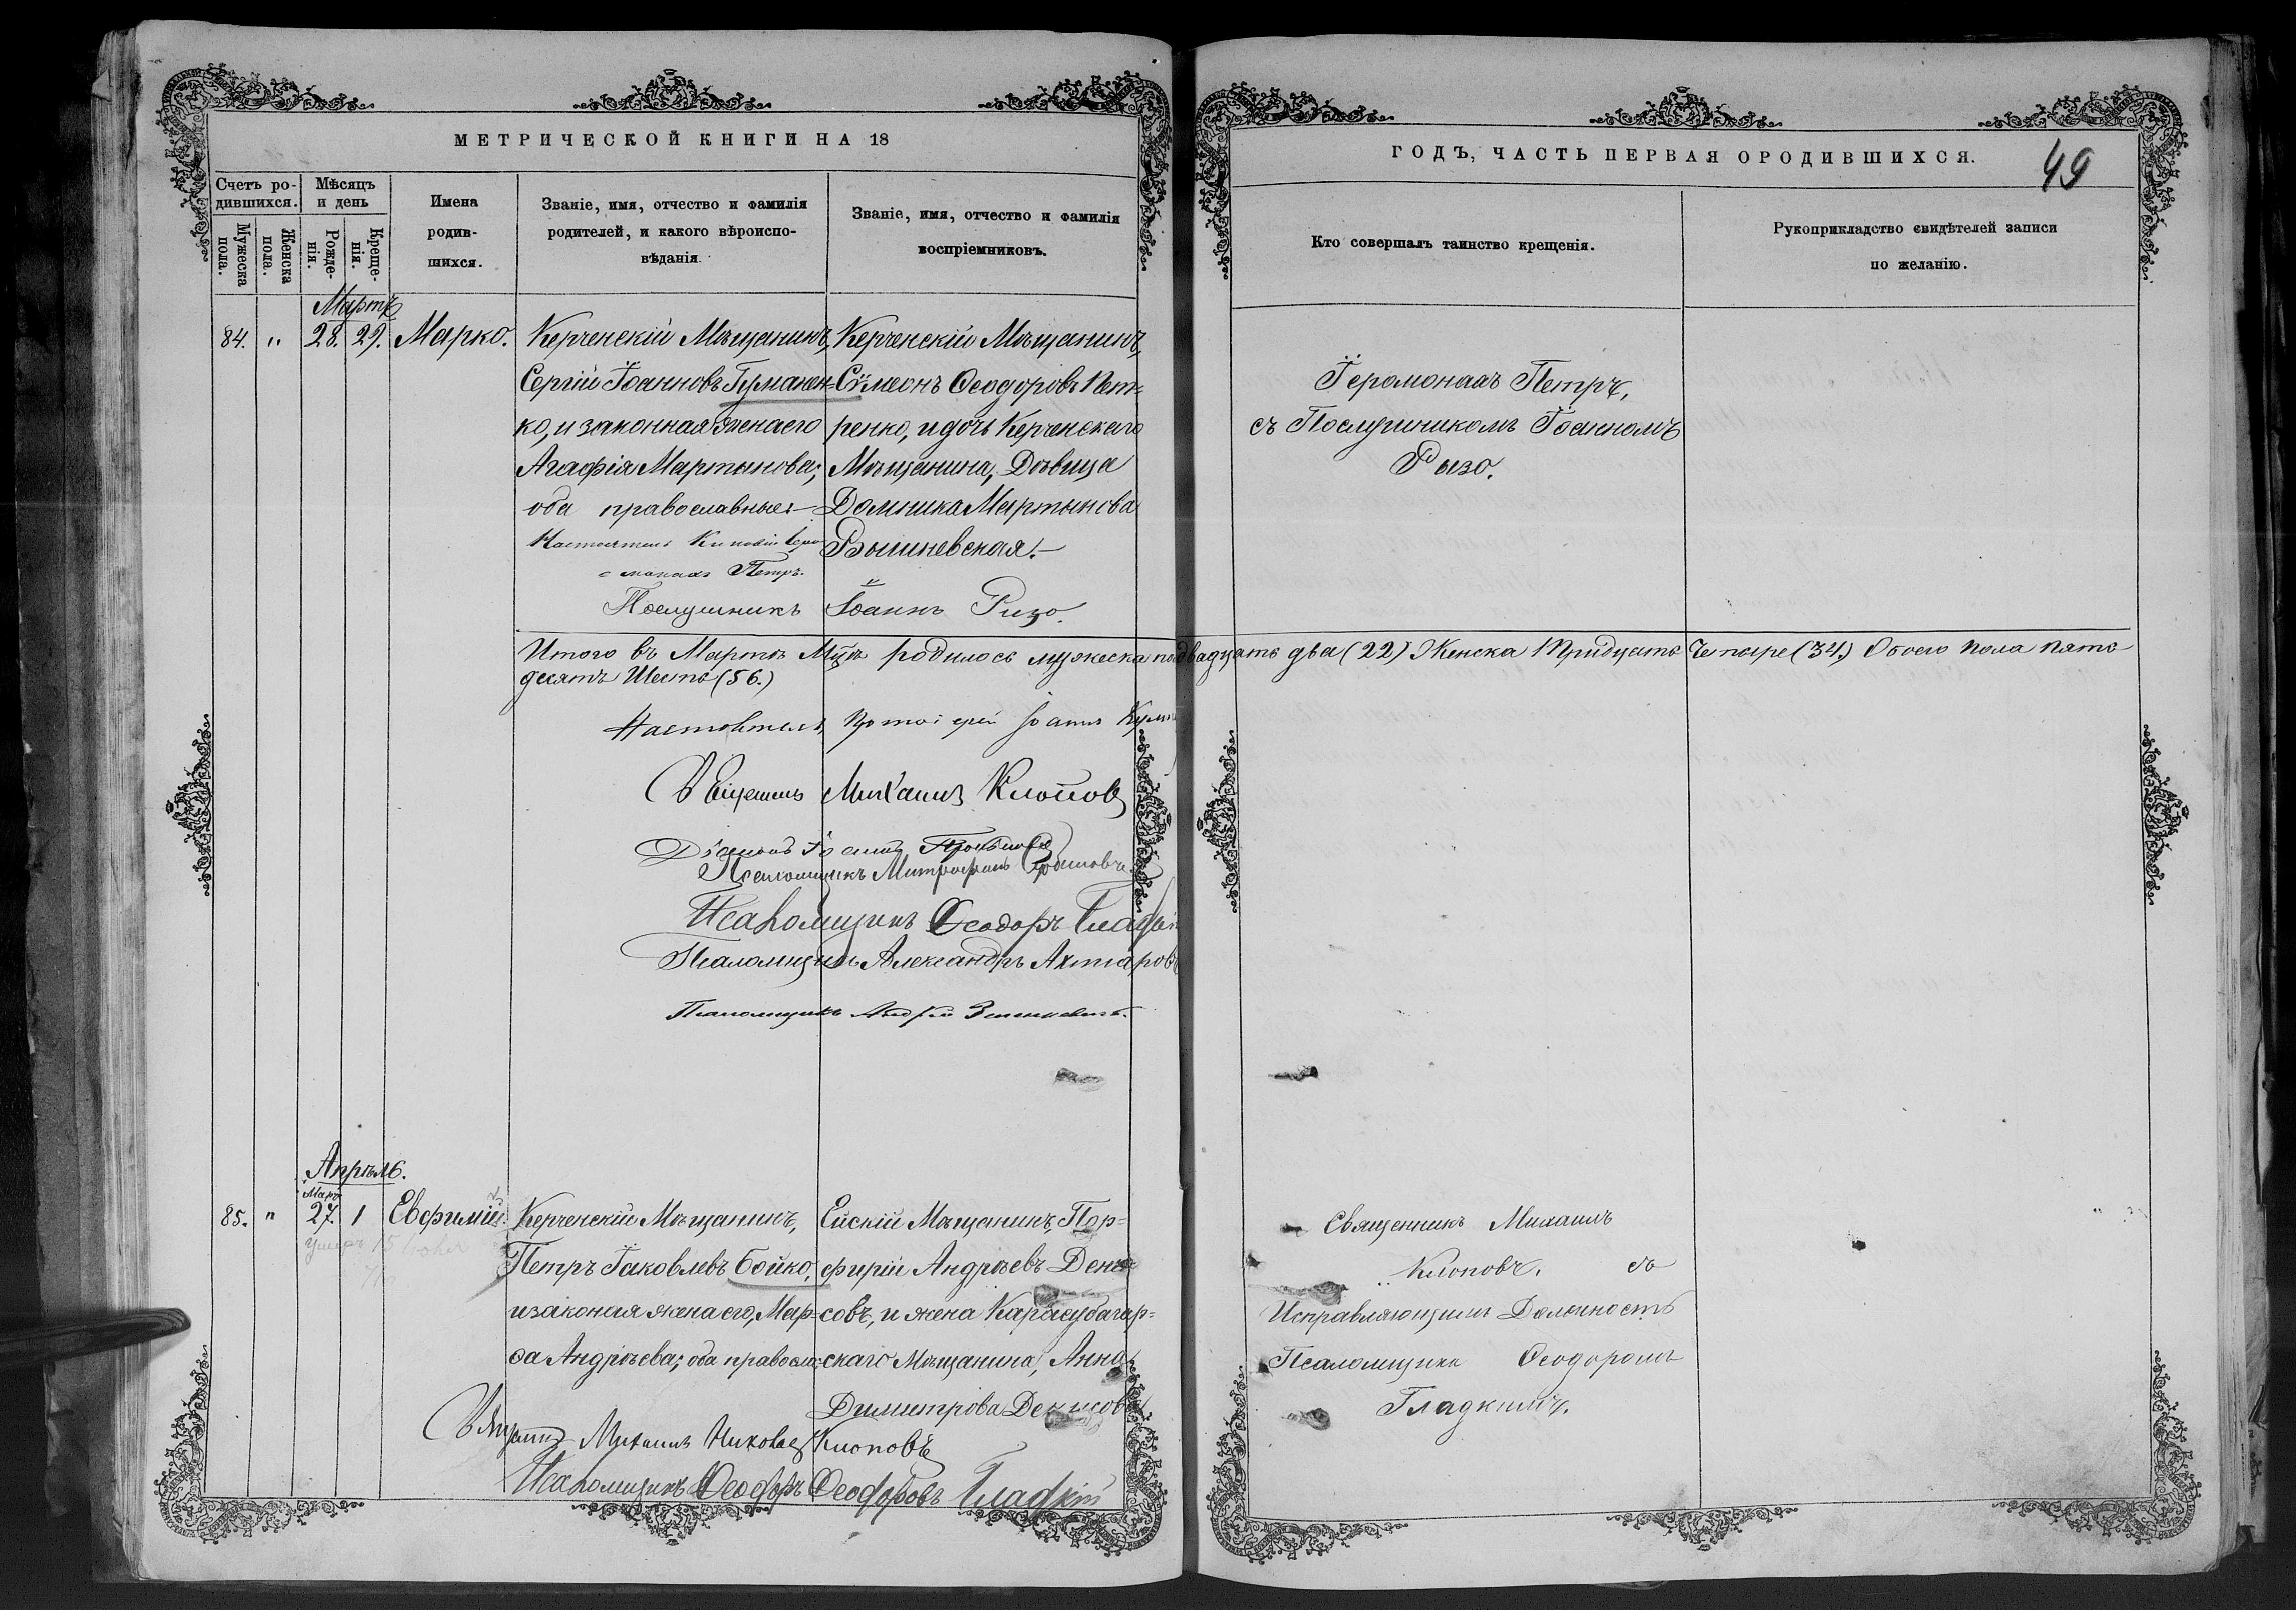 МЕТРИЧЕСКОЙ КНИГИ НА 18
ГОДЪ, ЧАСТЬ ПЕРВАЯ О РОДИВШИХСЯ.
49
Счетъ ро-
дившихся.
Мужеска пола.
Женска пола.
Мѣсяцъ
и день
Рожде-
нія.
Креще-
нія.
Имена
родив-
шихся.
Званіе, имя, отчество и фамилія
родителей, и какого вѣроиспо-
вѣданія.
Званіе, имя, отчество и фамилія
воспріемниковъ.
Кто совершалъ таинство крещенія.
Рукоприкладство свидѣтелей записи
по желанію.
Мартъ
84. " 28. 29. Марко.
Керченскій Мѣщанинъ,
Сергій Іоанновъ Гуманен-
ко, и законная жена его
Агафія Мартынова;
оба православные.
Настоятель Киновіи Іеро
монахъ Петръ.
Послушникъ Іоаннъ Ризо.
Керченскій Мѣщанинъ,
Сѵмеонъ Ѳеодоровъ Пет-
ренко, и дочь Керченскаго
Мѣщанина, Дѣвица
Домника Мартынова
Вышневская.
Іеромонахъ Петръ,
съ Послушникомъ Іоанномъ
Ризо.
Итого въ Мартѣ Мцѣ родилось мужеска пол двадцать два (22) Женска Тридцать Четыре (34.) Обоего пола пять-
десятъ Шесть (56.)
Настоятель Протоіерей Іоаннъ
Священникъ Михаилъ Клоповъ
Діаконъ Іоаннъ
Псаломщикъ Митрофанъ
Псаломщикъ Ѳеодоръ Гладкій
Псаломщикъ Александръ Ахтаровъ
Псаломщикъ Андрей
Апрѣль.
Мар
85. " 27. 1 Евфимій.
умеръ 15
Керченскій Мѣщанинъ,
Петръ Іаковлевъ Бойко,
и законная жена его, Мар-
ѳа Андрѣева; оба правосла
Ейскій Мѣщанинъ, Пор-
фирій Андрѣевъ Дени
совъ, и жена Карасубазар-
скаго Мѣщанина, Анна
Димитрова Денисова
Священникъ Михаилъ
Клоповъ. съ
Исправляющимъ Должность
Псаломщика Ѳеодоромъ
Гладкимъ.
Священникъ Михаилъ Николаев Клоповъ
Псаломщикъ Ѳеодоръ Ѳеодоровъ Гладкій